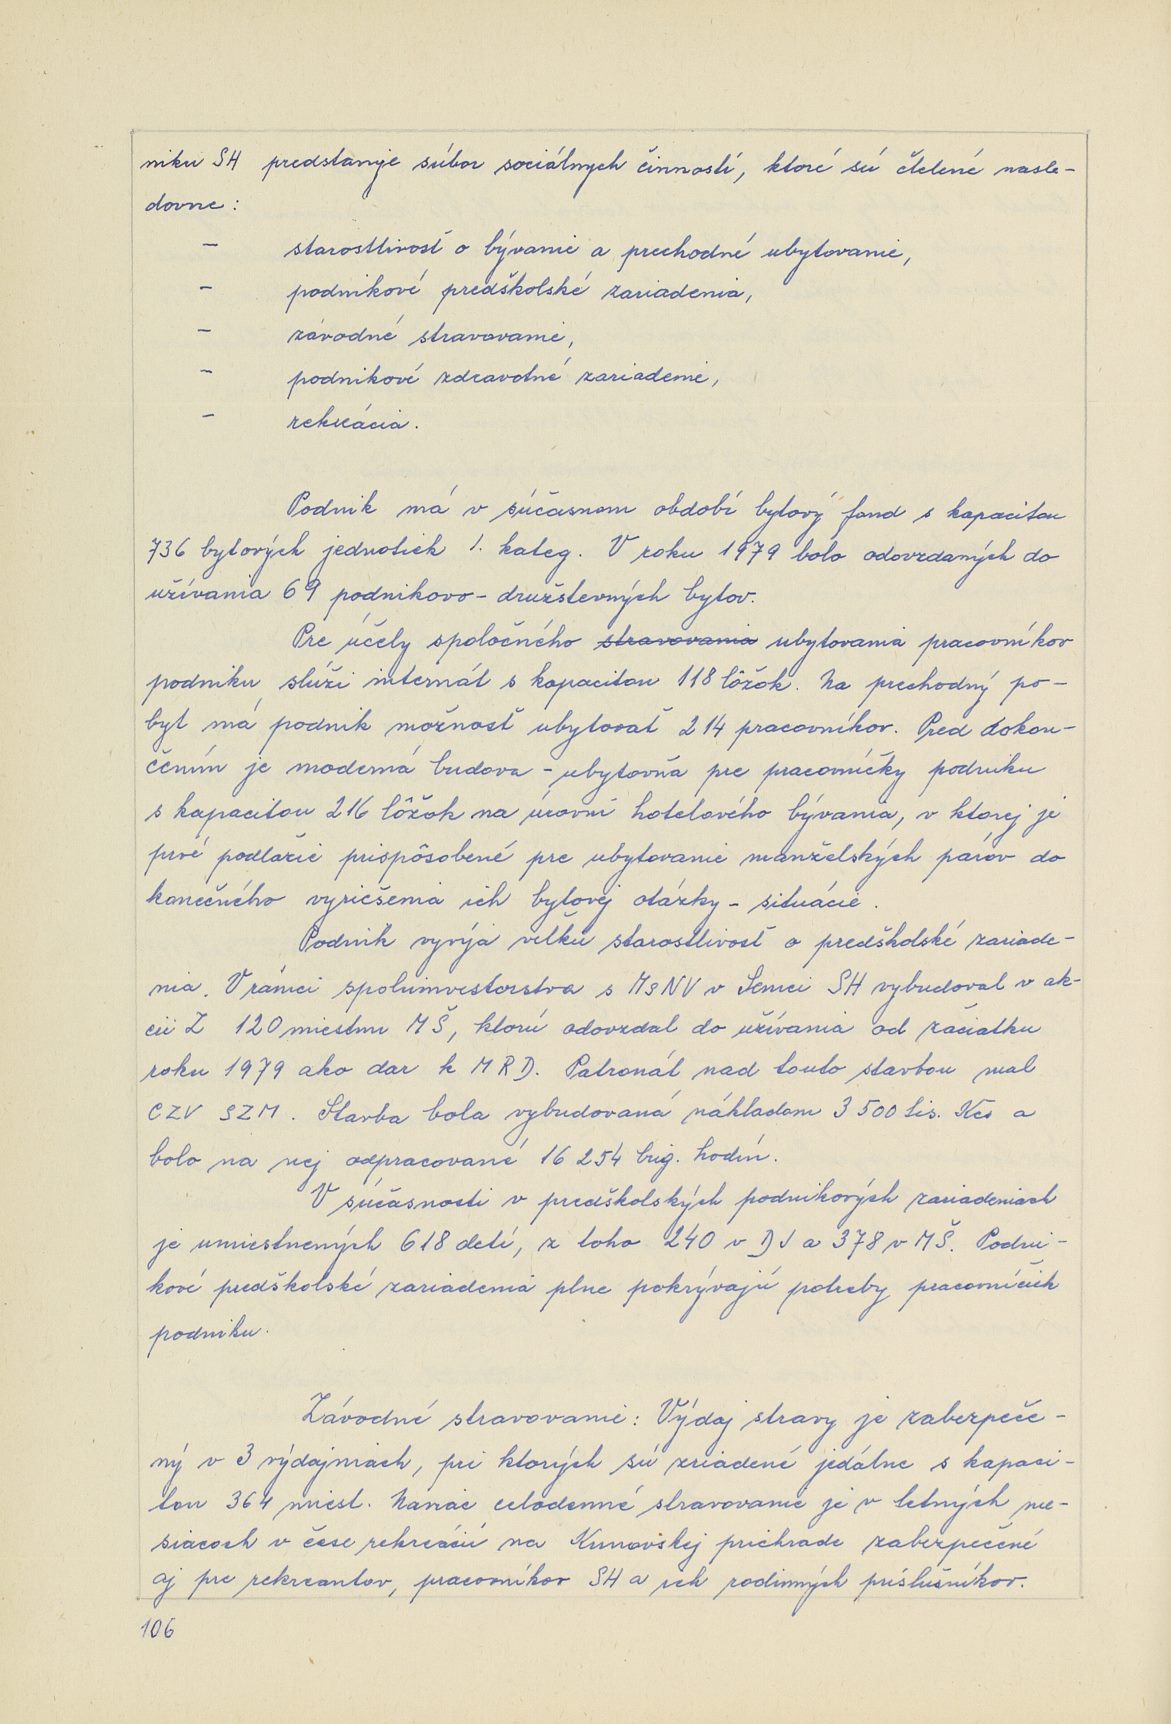 niku SH predstavuje súbor sociálnych činností, ktoré sú členené nasle-
dovne:
- starostlivosť o bývanie a prechodné ubytovanie,
- podnikové predškolské zariadenia,
- závodné stravovanie,
- podnikové zdravotné zariadenie,
- rekreácia.
Podnik má v súčasnom období bytový fond s kapacitou
736 bytových jednotiek 1. kateg. V roku 1979 bolo odovzdaných do
užívania 69 podnikovo-družstevných bytov.
Pre účely spoločného stravovania ubytovania pracovníkov
podniku slúži internát s kapacitou 118 lôžok. Na prechodný po-
byt má podnik možnosť ubytovať 214 pracovníkov. Pred dokon-
čením je moderná budova - ubytovňa pre pracovníčky podniku
s kapacitou 216 lôžok na úrovni hotelového bývania, v ktorej je
prvé podlažie prispôsobené pre ubytovanie manželských párov do
konečného vyriešenia ich bytovej otázky - situácie.
Podnik vyvýja veľkú starostlivosť o predškolské zariade-
nia. V rámci spoluinvestorstva s MsNV v Senici SH vybudoval v ak-
cii Z 120 miestnu MŠ, ktorú odovzdal do užívania od začiatku
roku 1979 ako dar k MRD. Patronát nad touto stavbou mal
CZV SZM. Stavba bola vybudovaná nákladom 3 500 tis. Kčs a
bolo na nej odpracované 16 254 brig. hodín.
V súčasnosti v predškolských podnikových zariadeniach
je umiestnených 618 detí, z toho 240 v DJ a 378 v MŠ. Podni-
kové predškolské zariadenia plne pokrývajú potreby pracovníčiek
podniku.
Závodné stravovanie: Výdaj stravy je zabezpeče-
ný v 3 výdajniach, pri ktorých sú zriadené jedálne s kapaci-
tou 364 miest. Naviac celodenné stravovanie je v letných me-
siacoch v čase rekreácií na Kunovskej priehrade zabezpečené
aj pre rekreantov, pracovníkov SH a ich rodinných príslušníkov.
106